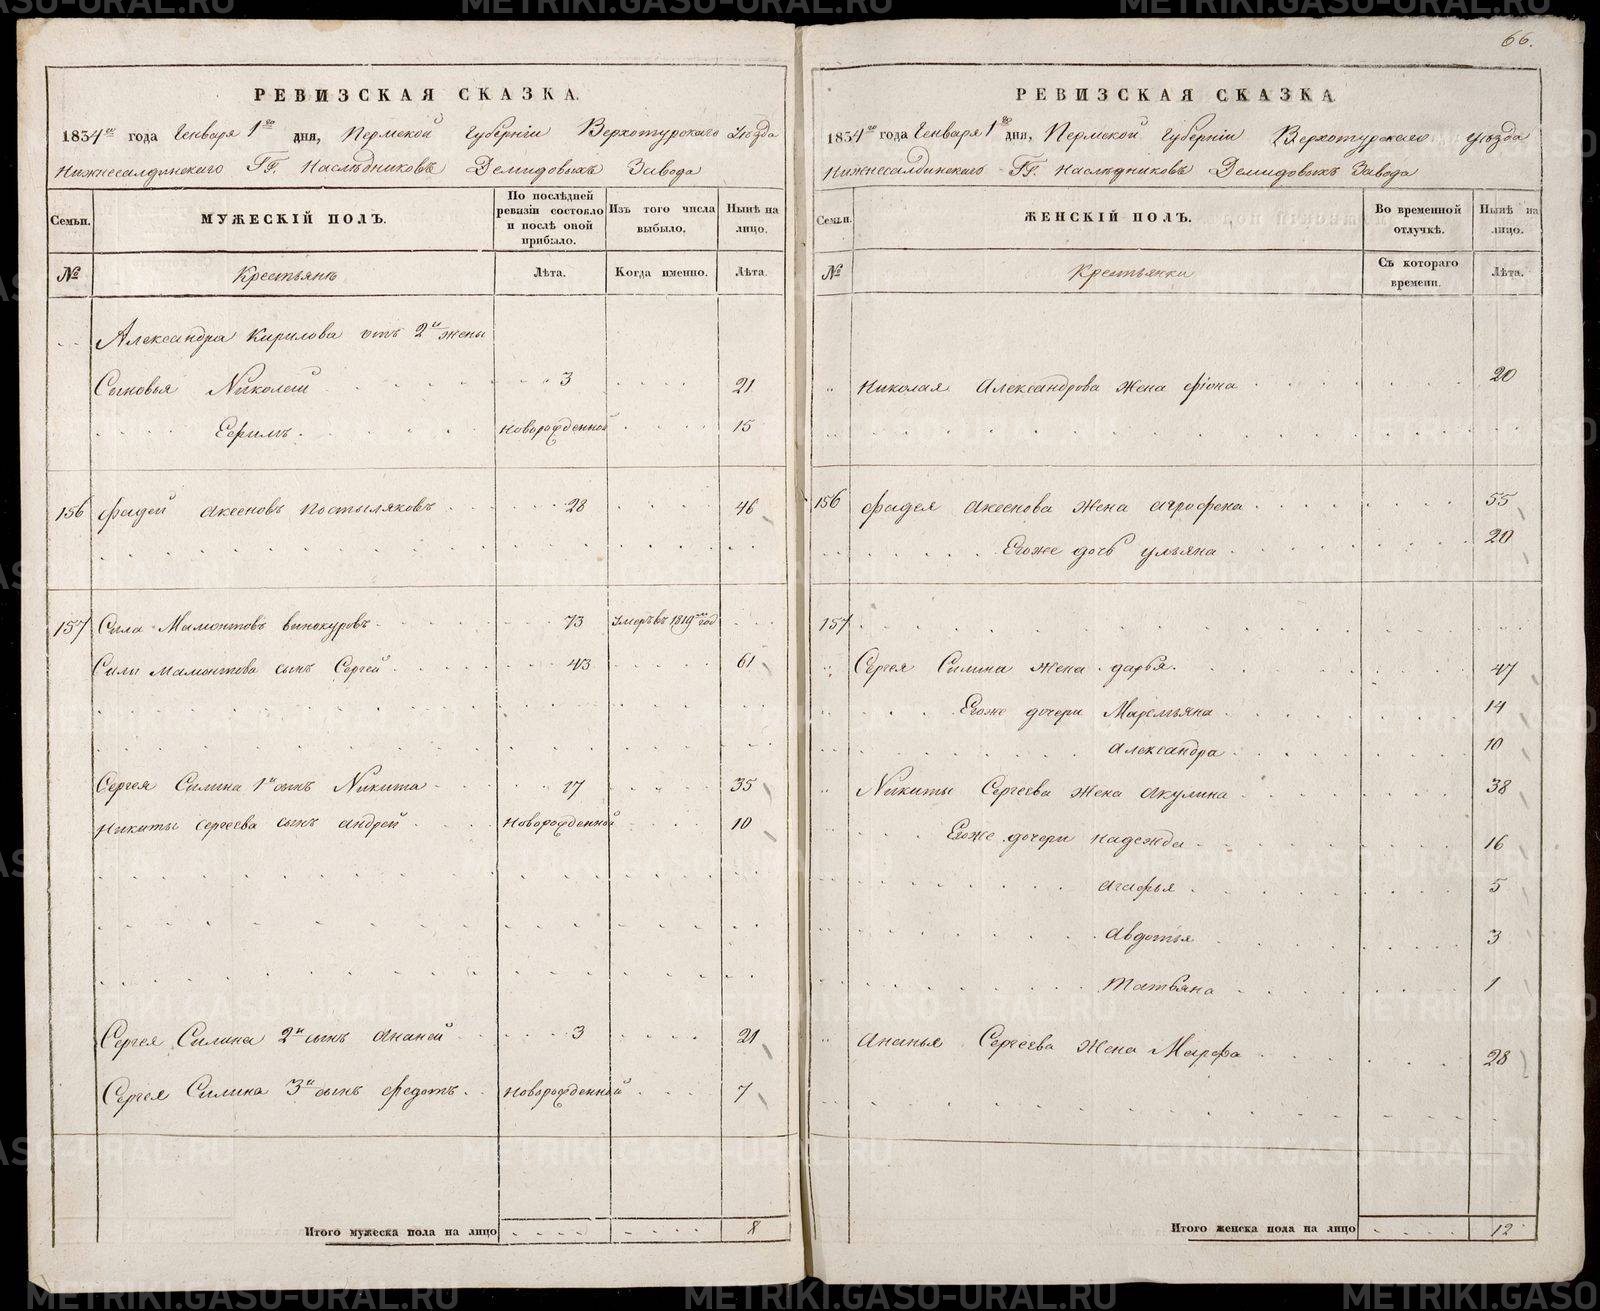 66.
РЕВИЗСКАЯ СКАЗКА.
1834го года Генваря 1го дня, Пермской Губерніи Верхотурскаго Уѣзда
Нижнесалдинскаго ГГ. Наслѣдниковъ Демидовыхъ Завода
Семьи. МУЖЕСКІЙ ПОЛЪ. По послѣдней ревизіи состояло и послѣ оной прибыло. Изъ того числа выбыло. Нынѣ на лицо.
№ Крестьянъ Лѣта. Когда именно. Лѣта.
Александра Кирилова отъ 2й жены
Сыновья Николай 3 21
Ефимъ Новорожденной 15
156 Фадей Аксеновъ Постыляковъ 28 46
157 Сила Мамонтовъ Винокуровъ 73 Умеръ въ 1819мъ год
Силы Мамонтова сынъ Сергей 43 61
Сергея Силина 1й сынъ Никита 17 35
Никиты Сергеева сынъ Андрей Новорожденной 10
Сергея Силина 2й сынъ Ананей 3 21
Сергея Силина 3й сынъ Федотъ Новорожденной 7
Итого мужеска пола на лицо 8
РЕВИЗСКАЯ СКАЗКА
1834го года Генваря 1го дня, Пермской Губерніи Верхотурскаго уѣзда
Нижнесалдинскаго ГГ. Наслѣдниковъ Демидовыхъ Завода
Семьи. ЖЕНСКІЙ ПОЛЪ. Во временной отлучкѣ. Нынѣ на лицо.
№ Крестьянки Съ котораго времени. Лѣта.
Николая Александрова жена Фіона 20
156 Фадея Аксенова жена Агрофена 55
Егоже дочь Ульяна 20
157
Сергея Силина жена Дарья 47
Егоже дочери Маремьяна 14
Александра 10
Никиты Сергеева жена Акулина 38
Егоже дочери Надежда 16
Агафья 5
Авдотья 3
Татьяна 1
Ананья Сергеева жена Марфа 28
Итого женска пола на лицо 12
METRIKI.GASO-URAL.RU